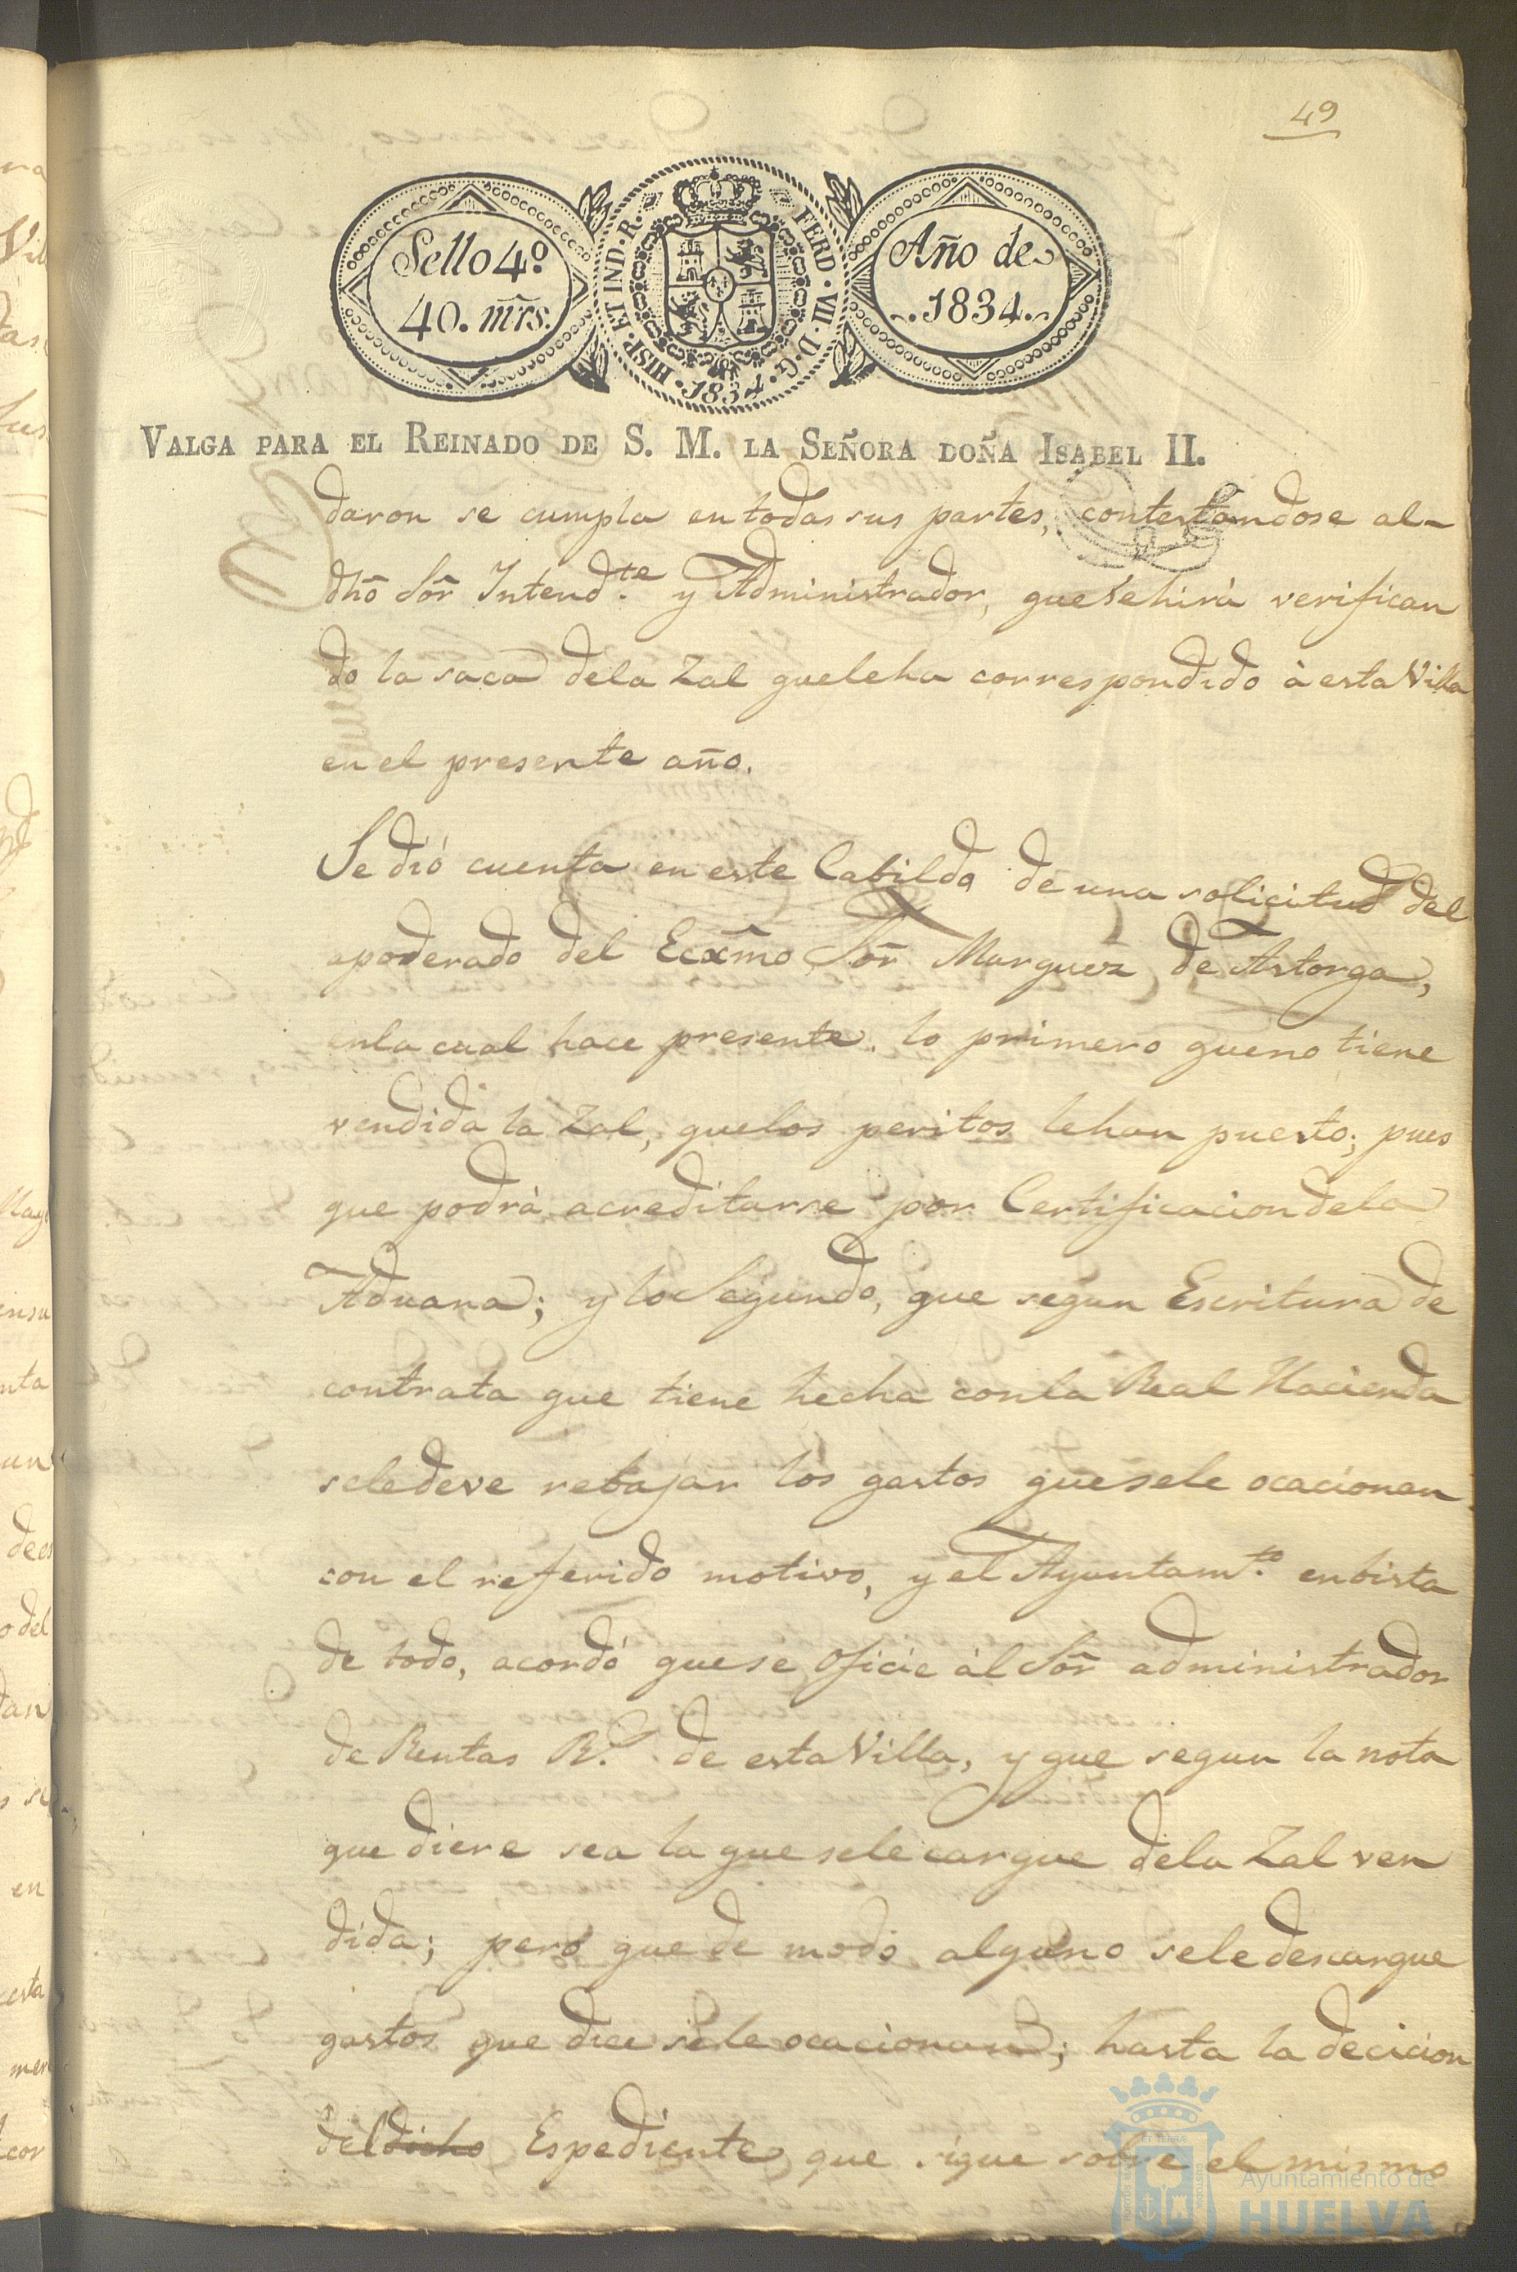 49
Sello 4º
40. mrs.
HISP. ET IND. R. FERD. VII. D. G. 1834.
Año de
1834.
VALGA PARA EL REINADO DE S. M. LA SEÑORA DOÑA ISABEL II.
daron se cumpla en todas sus partes, contestandose al
dhõ Sõr Intend.te y Administrador, que se hirà verifican
do la saca dela Zal que le ha correspondido à esta Villa
en el presente año.
Se dió cuenta en este Cabildo de una solicitud del
apoderado del Ecxm̃o Sõr Marquez de Astorga,
enla cual hace presente. lo primero que no tiene
vendida la Zal, que los peritos le han puesto; pues
que podrà acreditarse por Certificacion dela
Aduana; y lo Segundo, que segun Escritura de
contrata que tiene hecha con la Real Hacienda
sele deve rebajar los gastos que sele ocacionan
con el referido motivo, y el Ayuntam.to en bista
de todo, acordó que se oficie àl Sõr administrador
de Rentas R.s de esta Villa, y que segun la nota
que diere sea la que sele cargue dela Zal ven
dida; pero que de modo alguno sele descargue
gastos que dice sele ocacionan; hasta la decicion
del dicho Espediente que sigue sobre el mismo
Ayuntamiento de
HUELVA